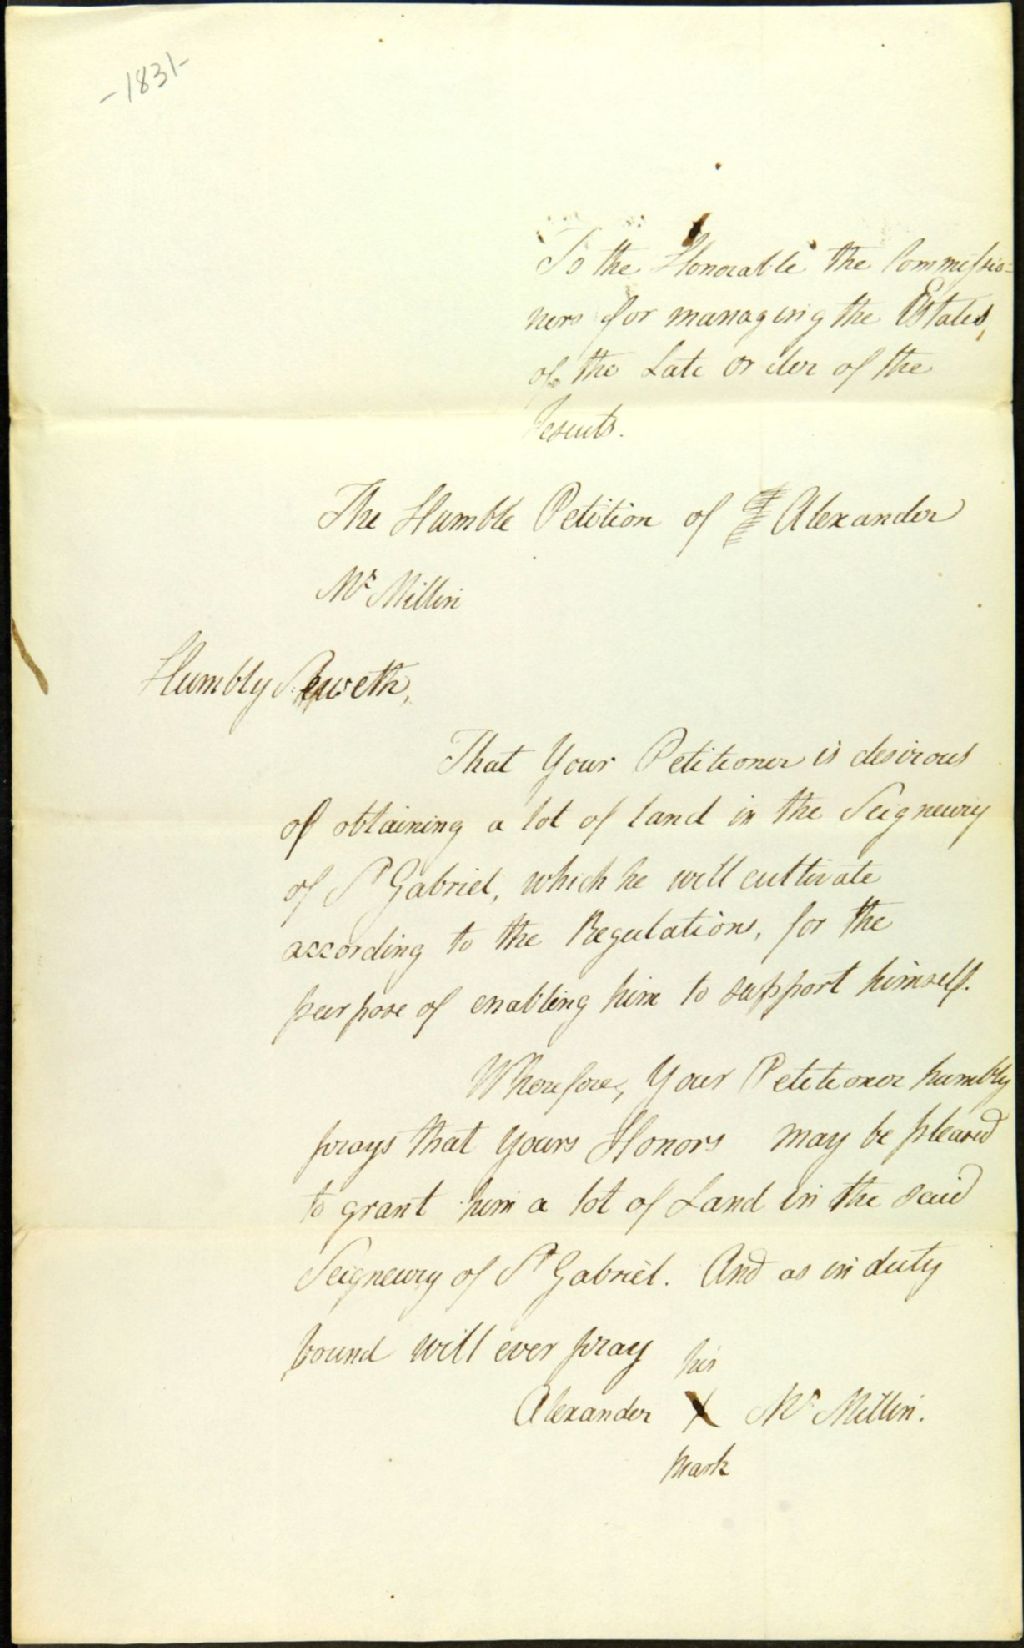 -1831-
To the Honorable the Commissio=
ners for managing the Estates,
of the Late Order of the
Jesuits.
The Humble Petition of Alexander
Mc Millin
Humbly Sheweth,
That Your Petitioner is desirous
of obtaining a lot of land in the Seigneury
of St Gabriel, which he will cultivate
according to the Regulations, for the
purpose of enabling him to support himself.
Wherefore, Your Petitioner humbly
prays that Yours Honors may be pleased
to grant him a lot of Land in the said
Seigneury of St Gabriel. And as in duty
bound will ever pray
his
Alexander X Mc Millin.
mark